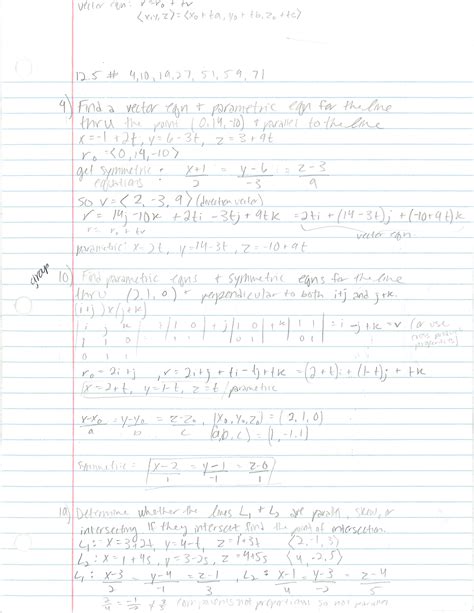 vector eqn: r = r₀ + tv
⟨x,y,z⟩ = ⟨x₀+ta, y₀+tb, z₀+tc⟩
12.5 # 4,10,19,27,51,59,71
4) Find a vector eqn + parametric eqn for the line
thru the point (0,14,-10) + parallel to the line
x=-1+2t, y=6-3t, z=3+9t
r₀=⟨0,14,-10⟩
get symmetric equations: x+1/2 = y-6/-3 = z-3/9
so v=⟨2,-3,9⟩ (direction vector)
r = 14j-10k +2ti -3tj +9tk = 2ti+(14-3t)j+(-10+9t)k
r = r₀ + tv vector eqn
parametric: x=2t, y=14-3t, z=-10+9t
10) Find parametric eqns + symmetric eqns for the line
thru (2,1,0) + perpendicular to both i+j and j+k.
(i+j)x(j+k)
|i j k| = |1 0| i - |1 0| j + |1 1| k = i-j+k = v (or use
|1 1 0| |1 1| |0 1| |0 1| cross product
|0 1 1| properties)
r₀=2i+j, r=2i+j+ti-tj+tk = (2+t)i+(1-t)j+tk
x=2+t, y=1-t, z=t parametric
x-x₀/a = y-y₀/b = z-z₀/c, (x₀,y₀,z₀)=(2,1,0)
(a,b,c)=(1,-1,1)
symmetric: x-2/1 = y-1/-1 = z-0/1
19) Determine whether the lines L₁ + L₂ are parallel, skew, or
intersecting. If they intersect find the point of intersection.
L₁: x=3+2t, y=4-t, z=1+3t ⟨2,-1,3⟩
L₂: x=1+4s, y=3-2s, z=4+5s ⟨4,-2,5⟩
L₁: x-3/2 = y-4/-1 = z-1/3, L₂: x-1/4 = y-3/-2 = z-4/5
components not proportional so not parallel